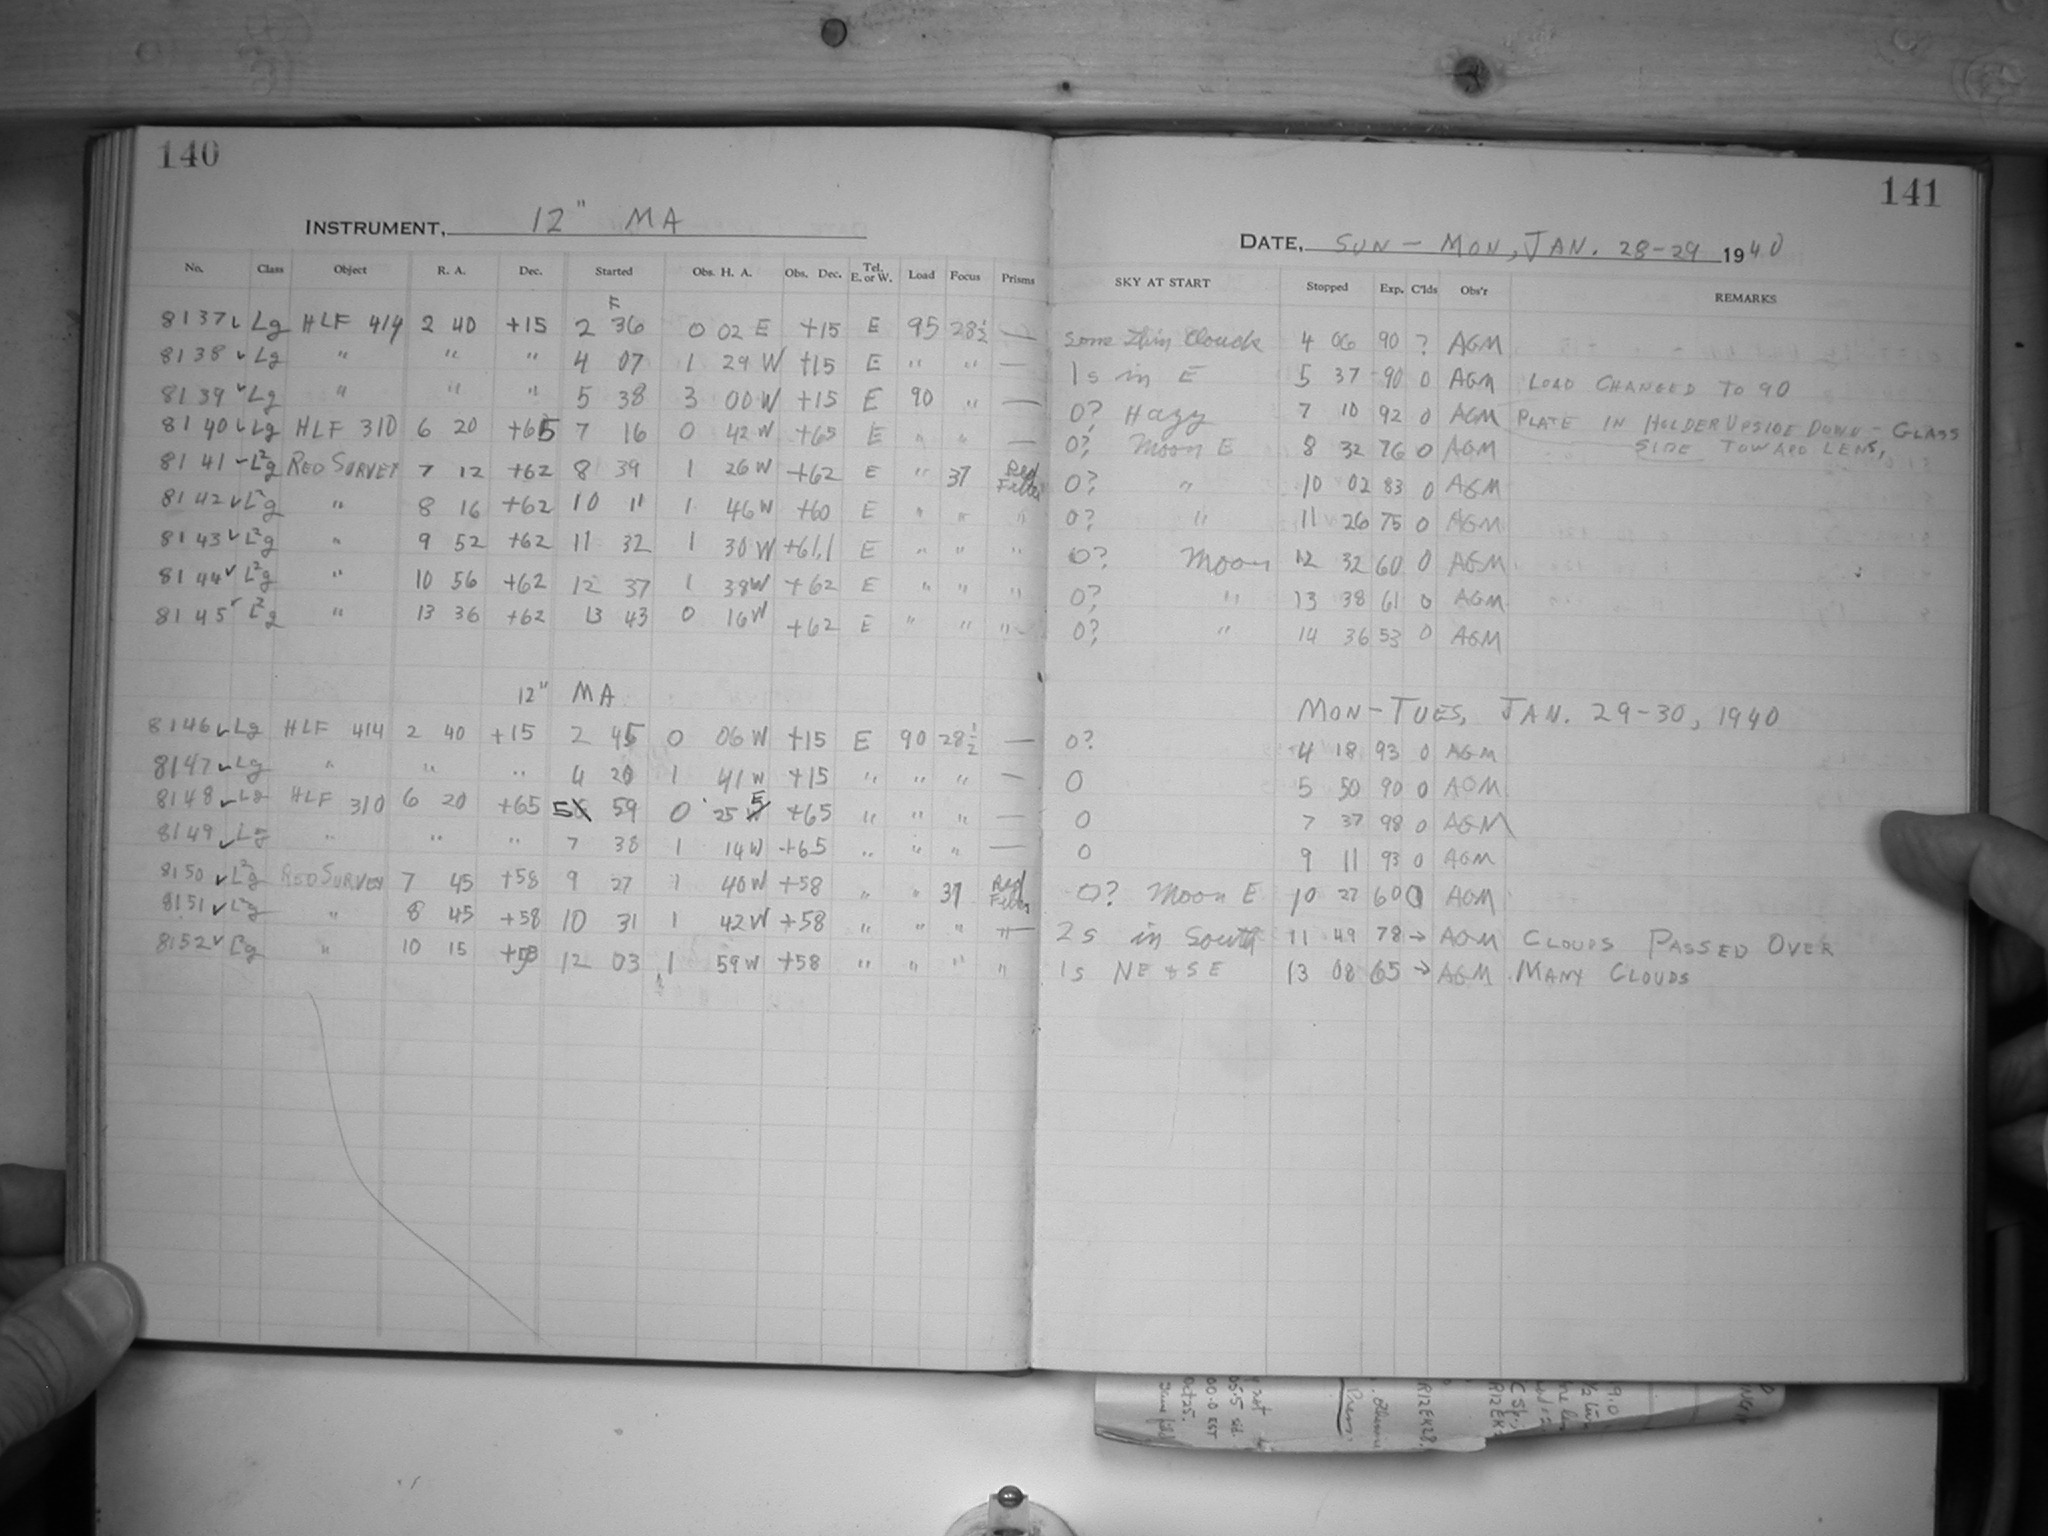 140
INSTRUMENT, 12" MA
No. Class Object R. A. Dec. Started Obs. H. A. Obs. Dec. Tel. E. or W. Load Focus Prisms
F
8137 ✓ Lg HLF 414 2 40 +15 2 36 0 02 E +15 E 95 28½ —
8138 ✓ Lg " " " 4 07 1 29 W +15 E " " —
8139 ✓ Lg " " " 5 38 3 00 W +15 E 90 " —
8140 ✓ Lg HLF 310 6 20 +65 7 16 0 42 W +65 E " " —
8141 ✓ L²g RED SURVEY 7 12 +62 8 39 1 26 W +62 E " 37 Red Filter
8142 ✓ L²g " 8 16 +62 10 11 1 46 W +60 E " " "
8143 ✓ L²g " 9 52 +62 11 32 1 30 W +61.1 E " " "
8144 ✓ L²g " 10 56 +62 12 37 1 38 W +62 E " " "
8145 ✓ L²g " 13 36 +62 13 43 0 16 W +62 E " " "
12" MA
8146 ✓ Lg HLF 414 2 40 +15 2 45 0 06 W +15 E 90 28½ —
8147 ✓ Lg " " " 4 20 1 41 W +15 " " " —
8148 ✓ Lg HLF 310 6 20 +65 5 59 0 25 E +65 " " " —
8149 ✓ Lg " " " 7 38 1 14 W +65 " " " —
8150 ✓ L²g RED SURVEY 7 45 +58 9 27 1 40 W +58 " " 37 Red Filter
8151 ✓ L²g " 8 45 +58 10 31 1 42 W +58 " " " "
8152 ✓ L²g " 10 15 +58 12 03 1 59 W +58 " " " "
141
DATE, SUN - MON, JAN. 28-29 1940
SKY AT START Stopped Exp. C'lds Obs'r REMARKS
some thin clouds 4 06 90 ? AGM
1s in E 5 37 90 0 AGM LOAD CHANGED TO 90
0? Hazy 7 10 92 0 AGM PLATE IN HOLDER UPSIDE DOWN - GLASS
0? Moon E 8 32 76 0 AGM SIDE TOWARD LENS,
0? " 10 02 83 0 AGM
0? " 11 26 75 0 AGM
0? Moon 12 32 60 0 AGM
0? " 13 38 61 0 AGM
0? " 14 36 53 0 AGM
MON-TUES, JAN. 29-30, 1940
0? 4 18 93 0 AGM
0 5 50 90 0 AGM
0 7 37 98 0 AGM
0 9 11 93 0 AGM
0? Moon E 10 27 60 0 AGM
2s in South 11 49 78 → AGM CLOUDS PASSED OVER
1s NE + SE 13 08 65 → AGM MANY CLOUDS